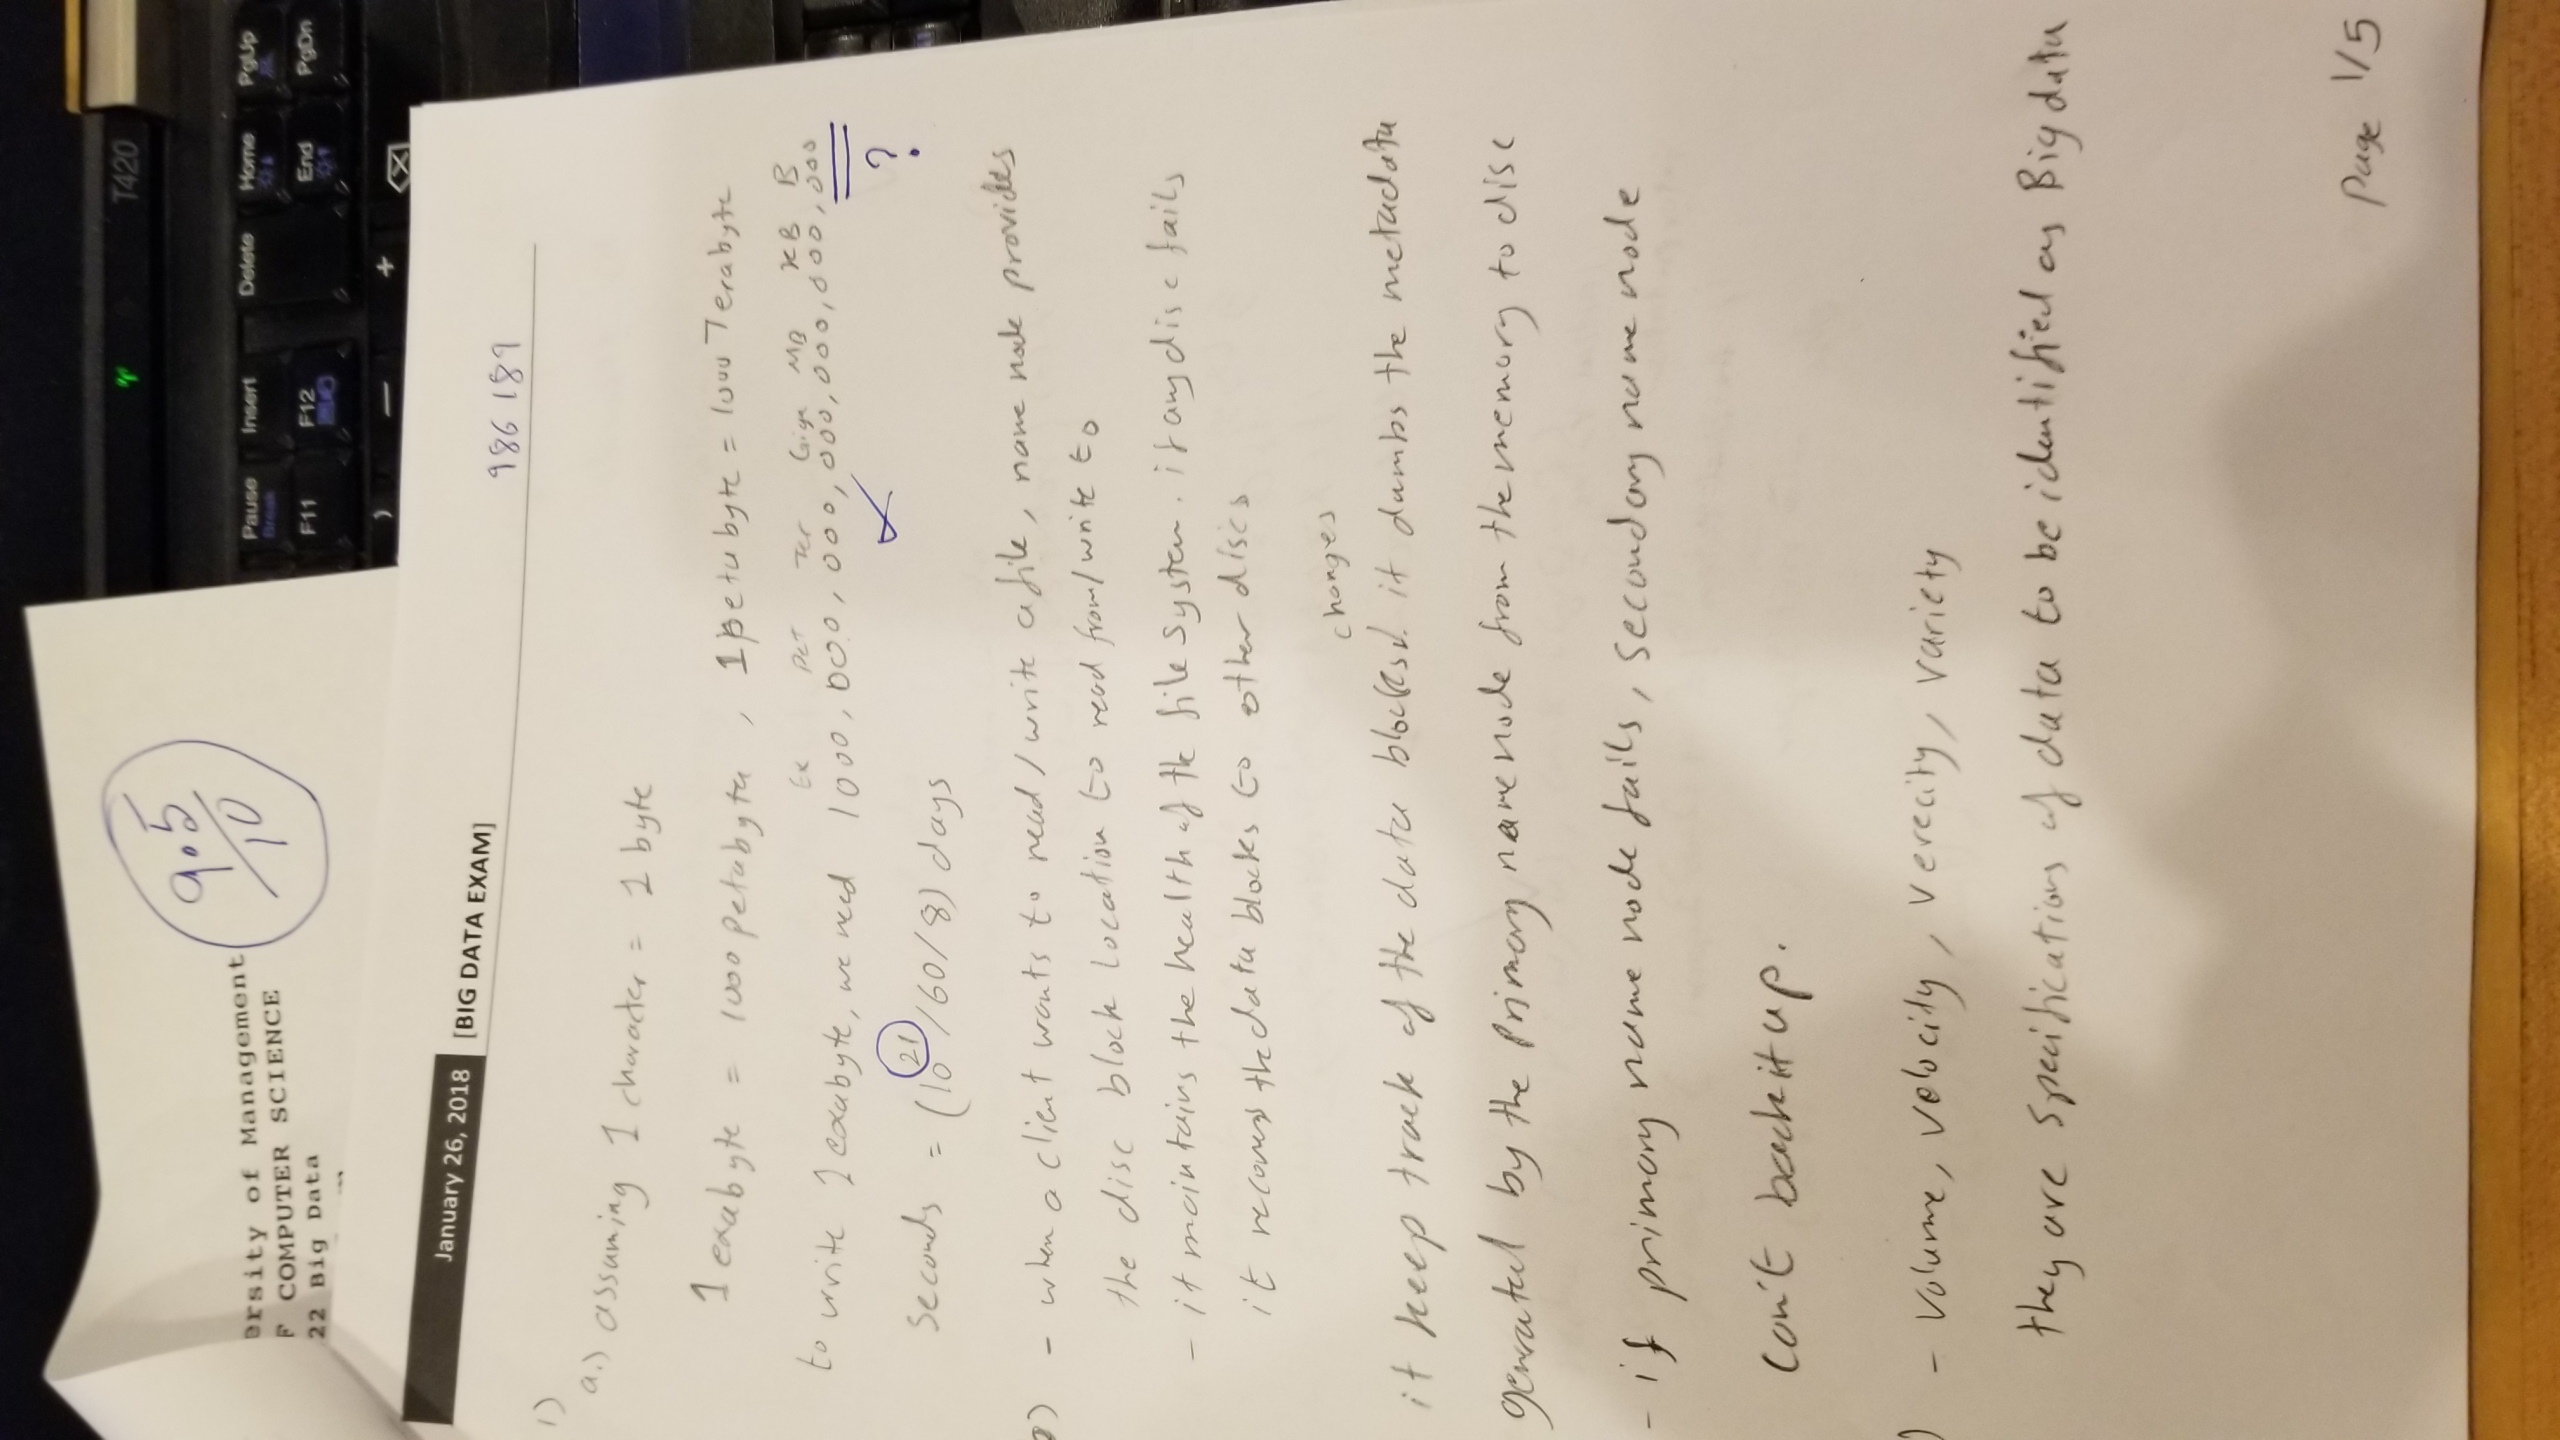 9.5/10
ersity of Management
F COMPUTER SCIENCE
22 Big Data
T420
Pause Insert Delete Home PgUp
Break
F11 F12 End PgDn
January 26, 2018 [BIG DATA EXAM]
986189
1)
a.) assuming 1 character = 1 byte
1 exabyte = 1000 petabyte , 1 petabyte = 1000 Terabyte
Ex Pet Ter Giga MB KB B
to write 1 exabyte, we need 1000,000,000,000,000,000,000
?
seconds = (10^21/60/8) days
) - when a client wants to read/write a file, name node provides
the disc block location to read from/write to
- it maintains the health of the file system. if any disc fails
it recovers the data blocks to other discs
changes
it keep track of the data blocks. it dumbs the metadata
generated by the primary name node from the memory to disc
- if primary name node fails, secondary name node
can't back it up.
) - Volume, Velocity, Verecity, Variety
they are specifications of data to be identified as Big data
page 1/5